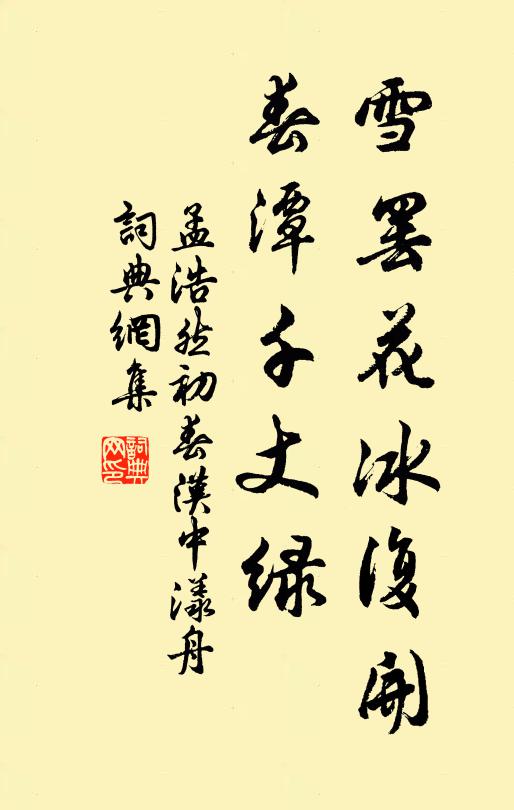 雪罢花冰复開
春潭千丈绿
孟浩然初春漢中漾舟
詞典網集
詞典网印